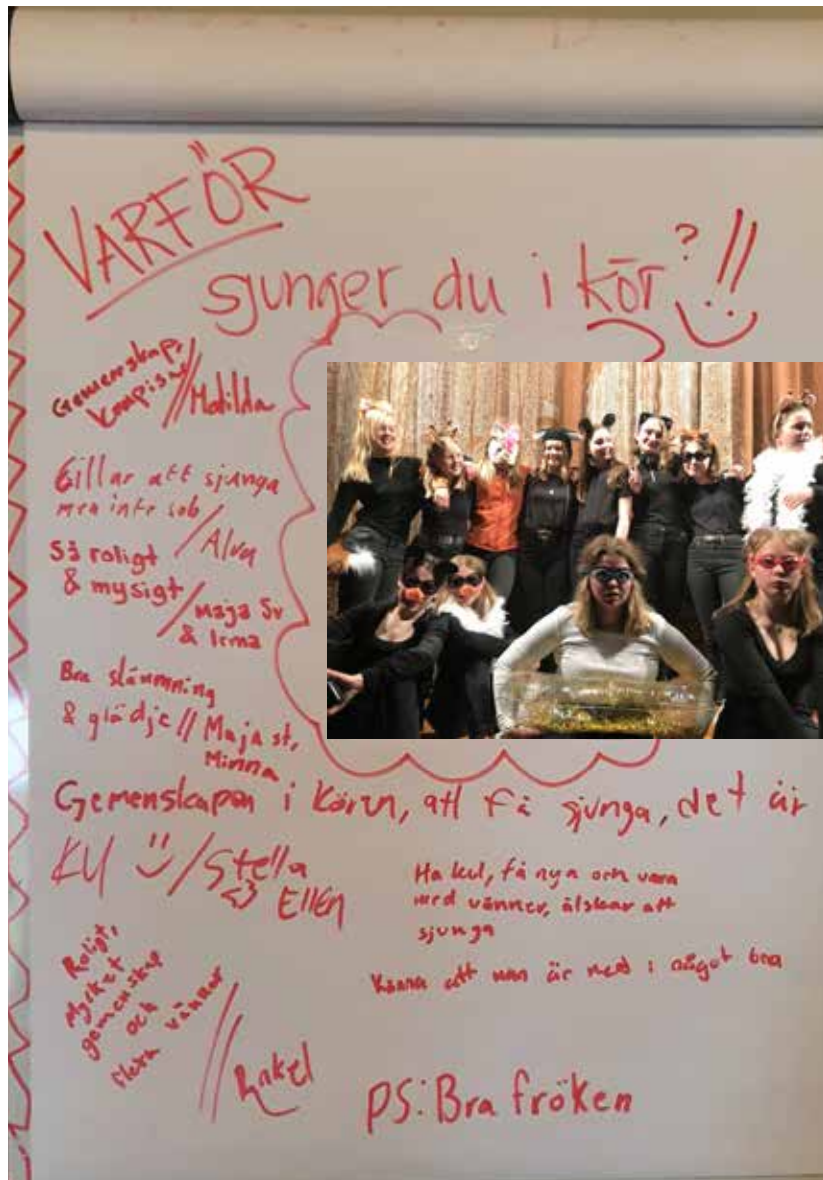 VARFÖR
sjunger du i kör?!!
Gemenskap,
//Matilda
Gillar att sjunga
men inte solo
/Alva
Så roligt
& mysigt
/Maja Sv
& Irma
Bra stämning
& glädje // Maja st,
Minna
Gemenskapen i kören, att få sjunga, det är
kul /Stella
<3 EllEn
Ha kul, få nya och vara
med vänner, älskar att
sjunga
Känna att man är med i något bra
Roligt,
mycket
gemenskap
och
flera vänner
//Rakel
PS: Bra fröken